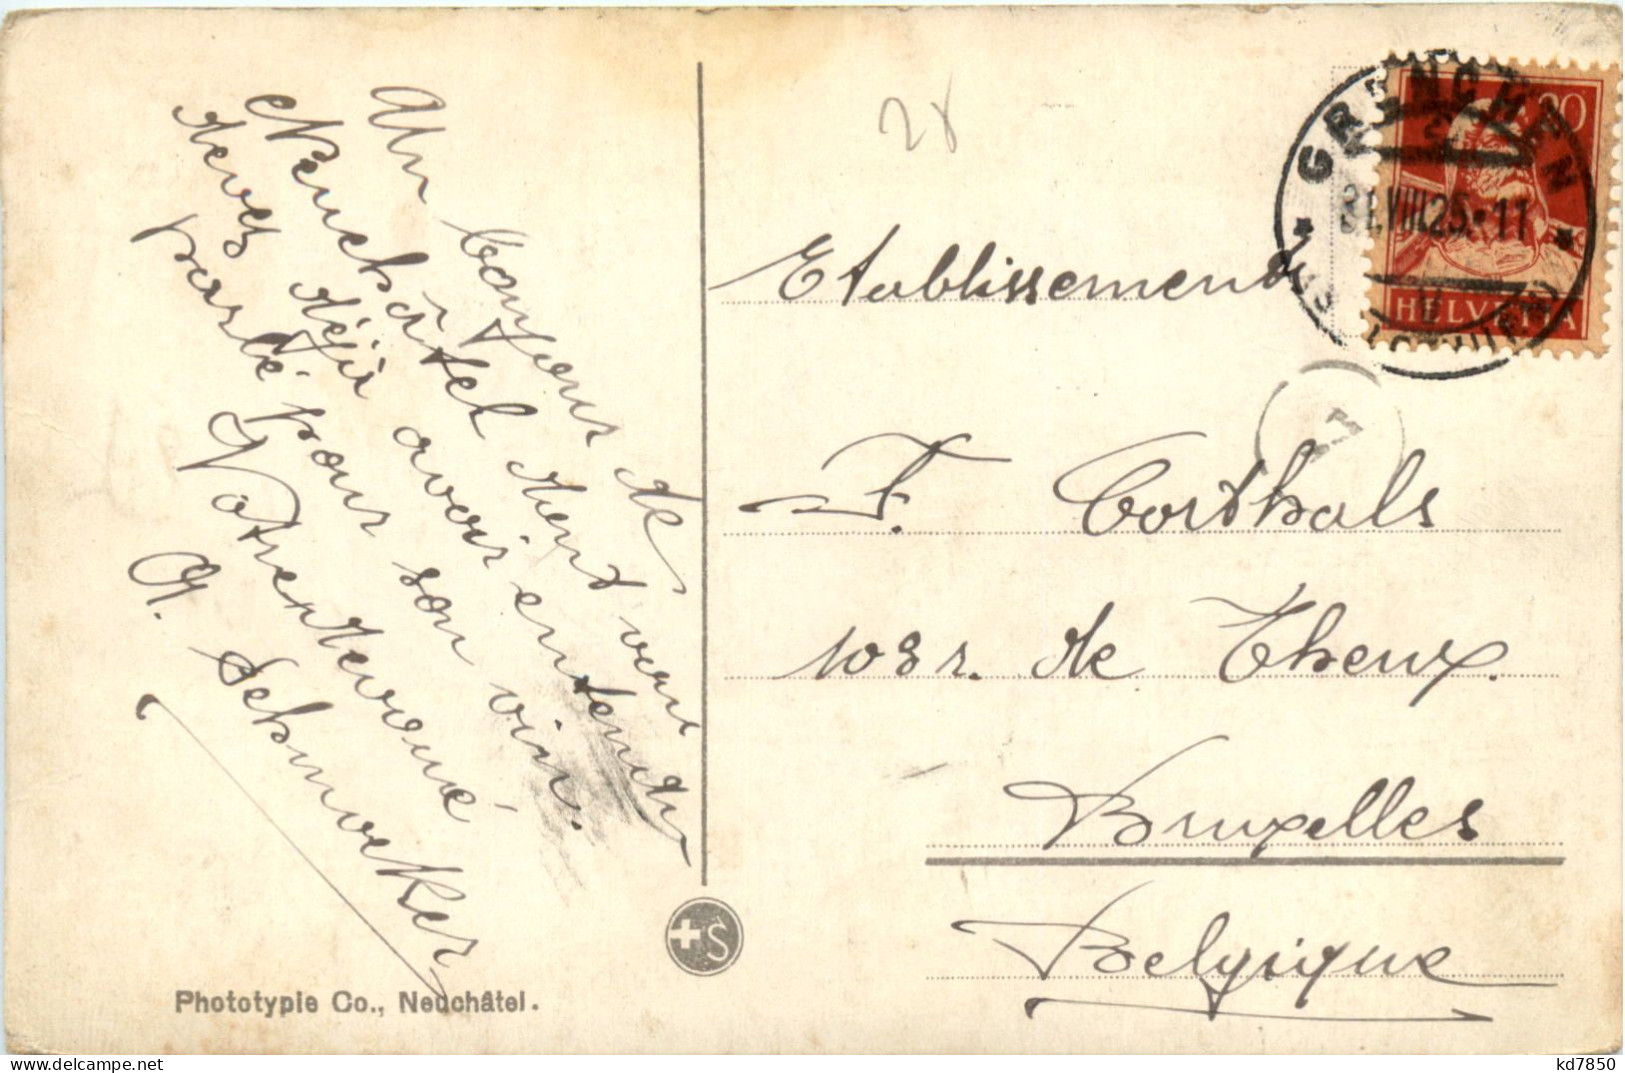 Un bonjour de
Neuchâtel dont vous
devez déjà avoir entendu
parlé pour son vin.
Votre dévoué
A. Schnweker
Phototypie Co., Neuchâtel.
28
GRENCHEN
31.VIII.25.-11
20
HELVETIA
Etablissement
F. Corthals
108 r. de Theux.
Bruxelles
Belgique
kd7850